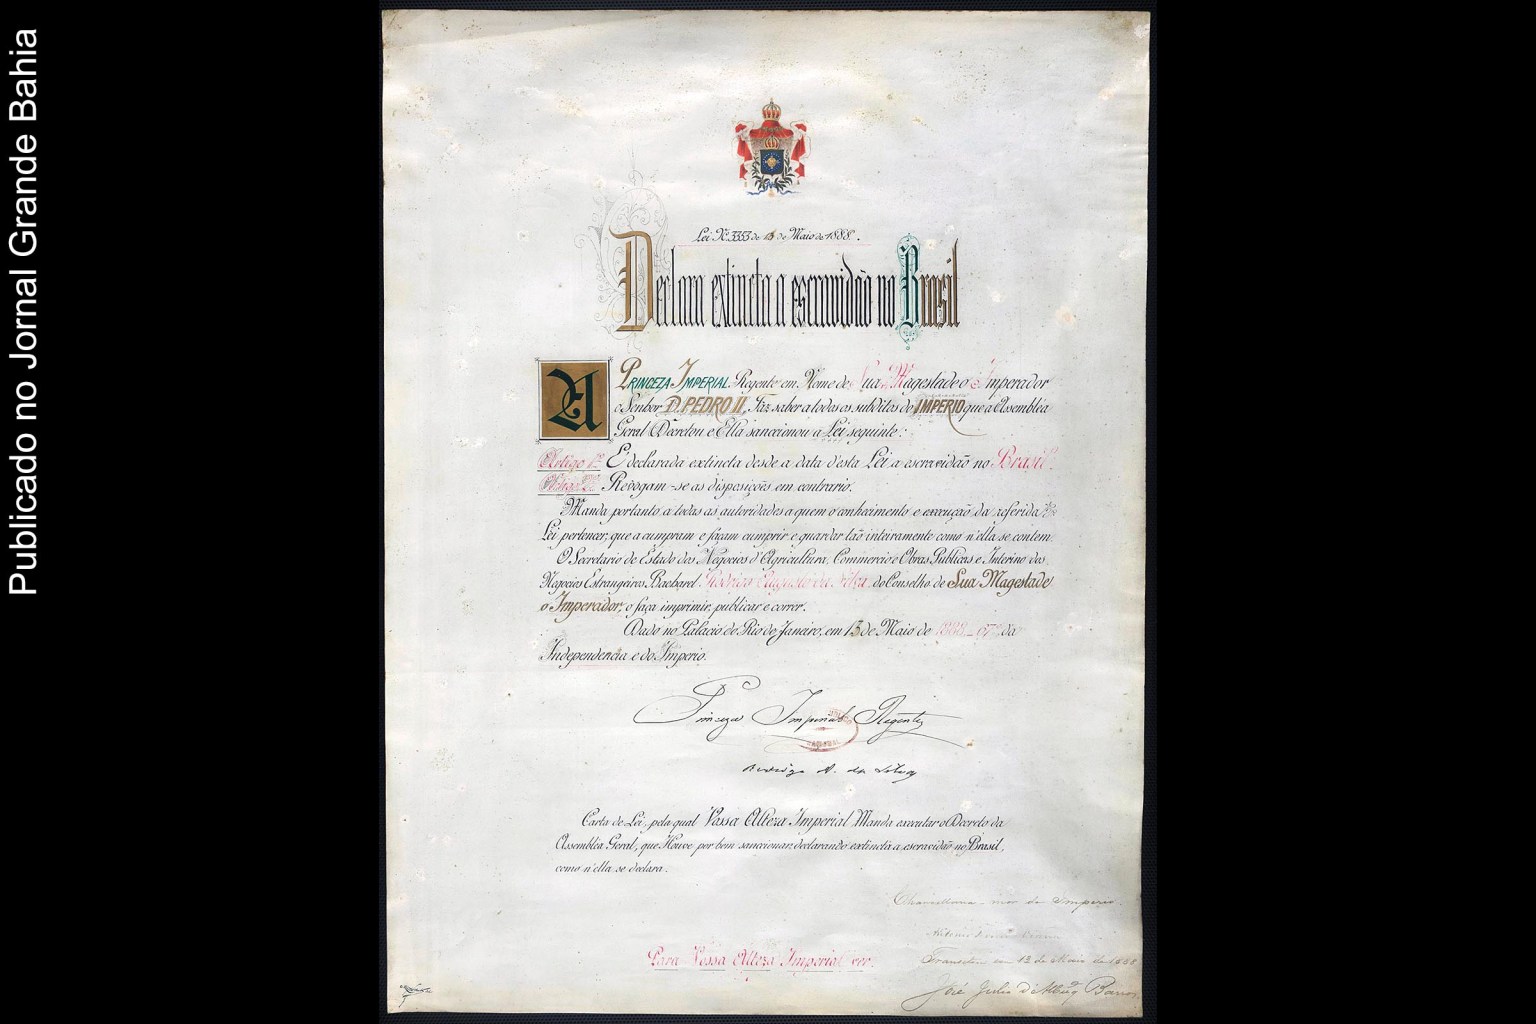 Publicado no Jornal Grande Bahia
Lei Nº 3353 de 13 de Maio de 1888.
Declara extincta a escravidão no Brasil
A PRINCEZA IMPERIAL, Regente em Nome de Sua Magestade o Imperador
o Senhor D. PEDRO II, Faz saber a todos os subditos do IMPERIO que a Assembléa
Geral Decretou e Ella sanccionou a Lei seguinte:
Artigo 1º É declarada extincta desde a data d'esta Lei a escravidão no Brazil.
Artigo 2º Revogam-se as disposições em contrario.
Manda portanto a todas as autoridades a quem o conhecimento e execução da referida
Lei pertencer, que a cumpram e façam cumprir e guardar tão inteiramente como n'ella se contem.
O Secretario de Estado dos Negocios d'Agricultura, Commercio e Obras Publicas e Interino dos
Negocios Estrangeiros, Bacharel Rodrigo Augusto da Silva, do Conselho de Sua Magestade
o Imperador, o faça imprimir, publicar e correr.
Dado no Palacio do Rio de Janeiro, em 13 de Maio de 1888 - 67º da
Independencia e do Imperio.
Princeza Imperial Regente
Rodrigo A. da Silva
Carta de Lei, pela qual Vossa Alteza Imperial Manda executar o Decreto da
Assembléa Geral, que Houve por bem sanccionar, declarando extincta a escravidão no Brasil,
como n'ella se declara.
Chancellaria-mór do Imperio.
Transitou em 13 de Maio de 1888
Para Vossa Alteza Imperial ver.
José Julio d'Albuqº Barros